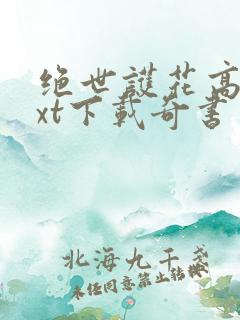 绝世護花高
xt下載奇書
北海九千盏
未经同意禁止转载